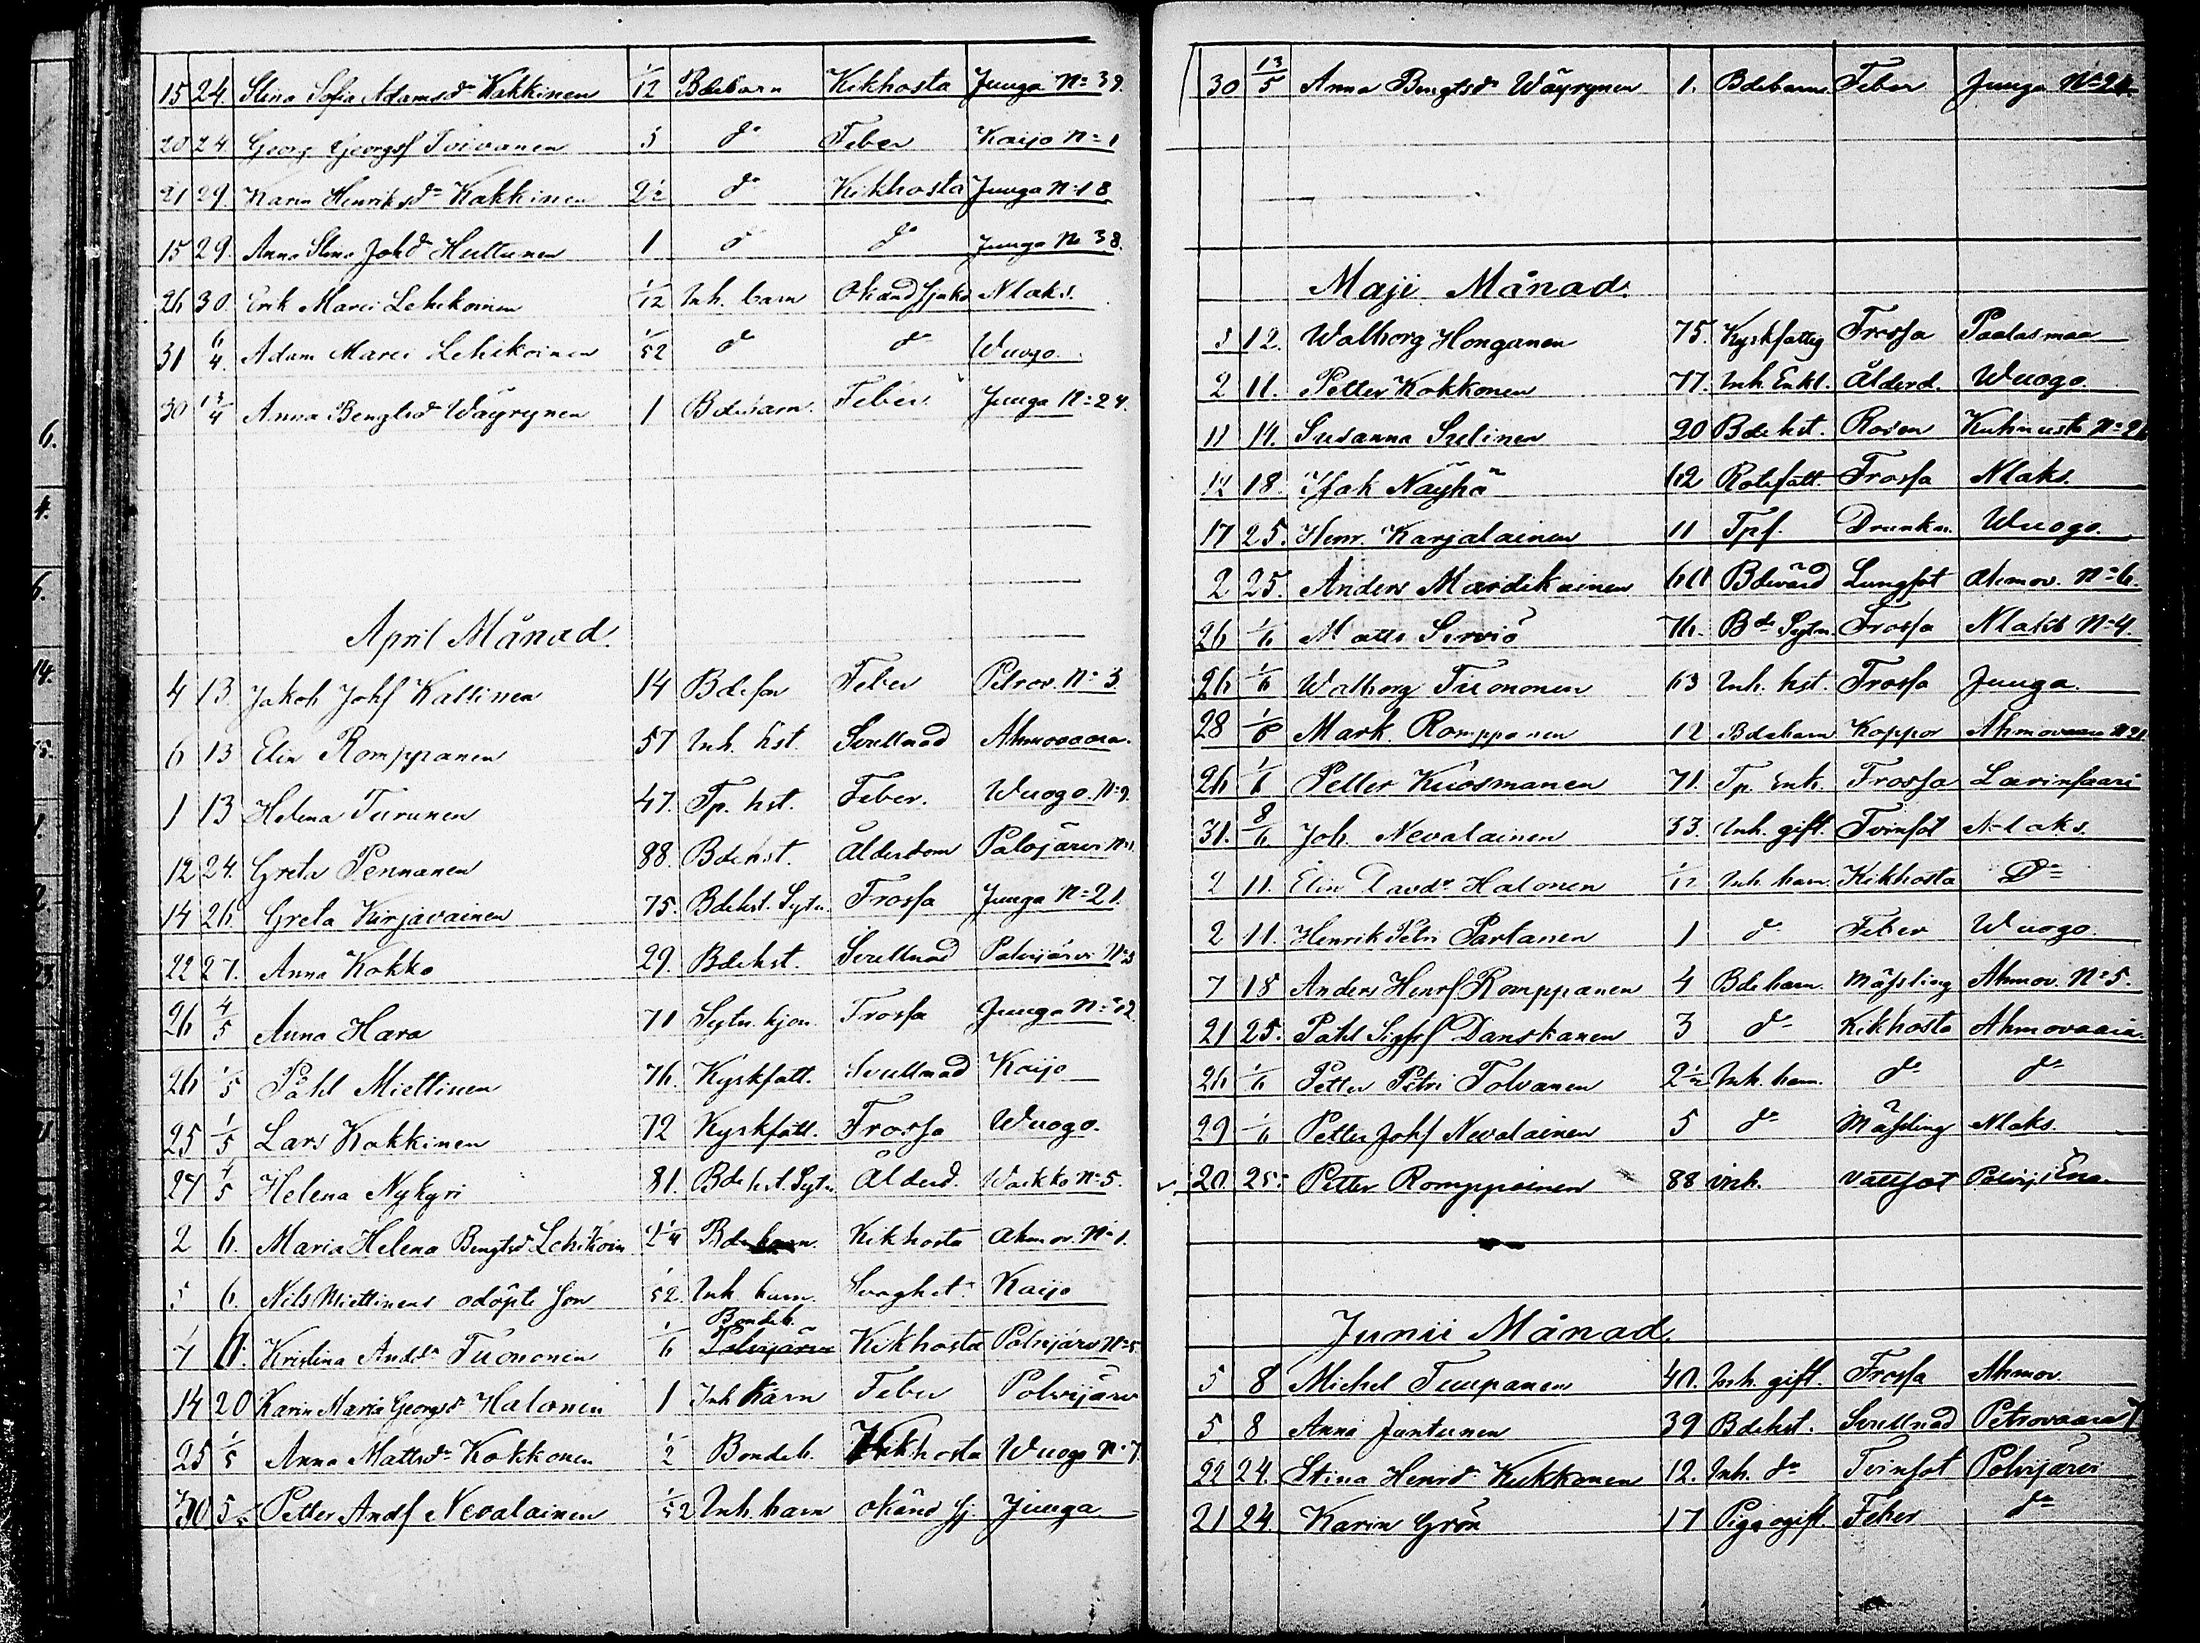 15 24. Stina Sofia Adamsdr Kakkinen 1/12 Bdebarn Kikhosta Juuga No 39.
20 24. Georg Georgsf Toivanen 5 do Feber Kaijo No 1
21 29. Karin Henriksdr Kakkinen 2 1/2 do Kikhosta Juuga No 18
15 29. Anna Stina Johdr Huttunen 1 do do Juuga No 38.
26 30. Erik Marci Lehikoinen 1/12 Inh. barn Okänd sjukd Nlaks.
31 6/4. Adam Marci Lehikoinen 1/52 do do Wuogo.
30 13/4 Anna Bengtsdr Wäyrynen 1 Bdebarn. Feber. Juuga No 24.
April Månad.
4 13. Jakob Johsf Kallinen 14 Bdeson Feber Petrov. No 3
6 13 Elin Romppanen 57 Inh. hst. Svullnad Ahmovaara.
1 13 Helena Turunen 47. Tp. hst. Feber. Wuogo. No 9.
12 24. Greta Pennanen 88. Bdehst. Ålderdom Polvijärvi No 1.
14 26 Greta Kurjavainen 75. Bdehst. Sytn. Frossa Juuga No 21.
22 27. Anna Kokko 29. Bdehst. Svullnad Polvijärvi No 3
26 4/5 Anna Hara 71 Sytn. hjon Frossa Juuga No 32.
26 1/5 Påhl Miettinen 76. Kyrkfatt. Svullnad Kaijo
25 1/5 Lars Kakkinen 72 Kyrkfatt. Frossa Wuogo.
27 4/5 Helena Nykyri 81. Bdehst. Sytn Ålderd. Waikko No 5.
2 6. Maria Helena Bengtsdr Lehikoin 2 1/4 Bdebarn Kikhosta Ahmov. No 1.
5 6. Nils Miettinens odöpte son 1/52. Inh. barn. Svaghet Kaijo
7 11. Kristina Andsdr Tuononen 1/6 Bondeb. Polvijärvi Kikhosta Polvijärvi No 5
14 20 Karin Maria Georgsdr Halonen 1 Inh barn Feber Polvijärvi
25 1/5 Anna Mattsdr Kokkonen 1/2 Bondeb. Kikhosta Wuogo No 7.
30 5/5 Petter Andsf Nevalainen 1/52 Inh. barn okänd sj Juuga
30 13/5 Anna Bengtsdr Wäyrynen 1. Bdebarn Feber Juuga No 24.
Maji Månad.
5 12. Walborg Honganen 75. Kyrkfattig Frossa Paalasmaa
2 11. Petter Kokkonen 77. Inh. Enkl. Ålderd. Wuogo.
11 14. Susanna Sulinen 20 Bdehst. Rosen Kuhnusta No 26
14 18. Isak Näyhä 62 Rotefatt. Frossa Nlaks.
17 25. Henr. Karjalainen 11 Tpf. Drunkn. Wuogo.
2 25. Anders Mardikainen 60 Bdevärd Lungsot Ahmov. No 6.
26 1/6 Matts Serviö 76. Bde Sytn. Frossa Nlaks No 4.
26 1/6 Walborg Tuononen 63 Inh. hst. Frossa Juuga.
28 1/6 Mark. Romppanen 12 Bdebarn Koppor Ahmovaara No 21
26 1/6 Petter Kuosmanen 71. Tp. Enk. Frossa Larinsaari
31. 8/6 Joh. Nevalainen 33. Inh. gift. Tvinsot N-laks.
2 11. Elin Davdr Halonen 1/12 Inh. barn. Kikhosta Do
2 11. Henrik Petri Partanen 1 do Feber Wuogo.
7 18 Anders Henrsf Romppanen 4 Bdebarn. Mässling Ahmov. No 5.
21 25. Påhl Sigfsf Danskanen 3 do Kikhosta Ahmovaara.
26 1/6 Petter Petri Tolvanen 2 1/2 Inh. barn. do do
29 1/6 Petter Johsf Nevalainen 5 do Mässling Nlaks.
20 25 Petter Romppainen 88 inh. Vattsot Polvij:
Junii Månad.
5 8 Michel Timpanen 40. Inh. gift. Frossa Ahmov.
5 8 Anna Jantunen 39 Bdehst. Svullnad Petrovaara 7
22 24. Stina Henrdr Kukkonen 12. Inh. do Tvinsot Polvijärvi
21 24 Karin Grön 17 Piga ogift. Feber do